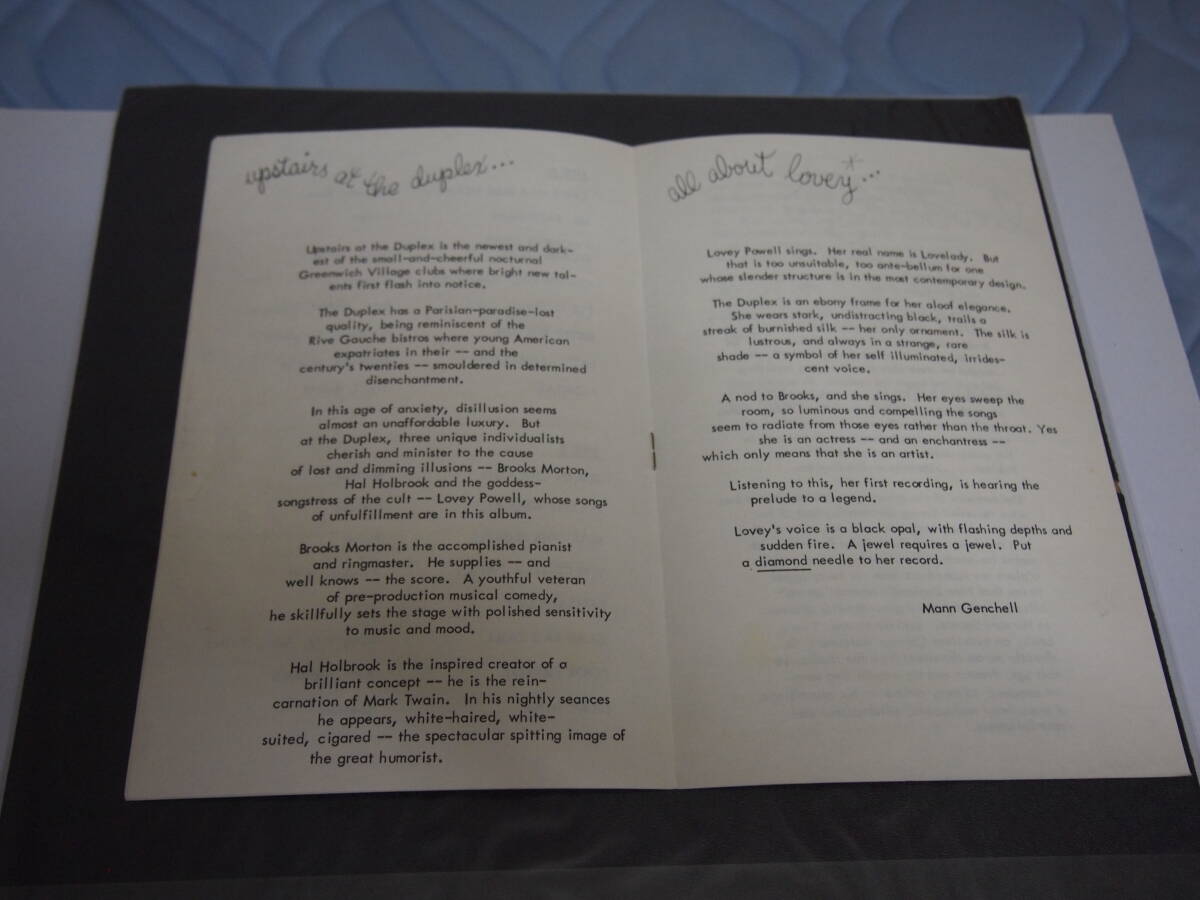 upstairs at the duplex...
Upstairs at the Duplex is the newest and dark-
est of the small-and-cheerful nocturnal
Greenwich Village clubs where bright new tal-
ents first flash into notice.
The Duplex has a Parisian-paradise-lost
quality, being reminiscent of the
Rive Gauche bistros where young American
expatriates in their -- and the
century's twenties -- smouldered in determined
disenchantment.
In this age of anxiety, disillusion seems
almost an unaffordable luxury. But
at the Duplex, three unique individualists
cherish and minister to the cause
of lost and dimming illusions -- Brooks Morton,
Hal Holbrook and the goddess-
songstress of the cult -- Lovey Powell, whose songs
of unfulfillment are in this album.
Brooks Morton is the accomplished pianist
and ringmaster. He supplies -- and
well knows -- the score. A youthful veteran
of pre-production musical comedy,
he skillfully sets the stage with polished sensitivity
to music and mood.
Hal Holbrook is the inspired creator of a
brilliant concept -- he is the rein-
carnation of Mark Twain. In his nightly seances
he appears, white-haired, white-
suited, cigared -- the spectacular spitting image of
the great humorist.
all about lovey...
Lovey Powell sings. Her real name is Lovelady. But
that is too unsuitable, too ante-bellum for one
whose slender structure is in the most contemporary design.
The Duplex is an ebony frame for her aloof elegance.
She wears stark, undistracting black, trails a
streak of burnished silk -- her only ornament. The silk is
lustrous, and always in a strange, rare
shade -- a symbol of her self illuminated, irrides-
cent voice.
A nod to Brooks, and she sings. Her eyes sweep the
room, so luminous and compelling the songs
seem to radiate from those eyes rather than the throat. Yes
she is an actress -- and an enchantress --
which only means that she is an artist.
Listening to this, her first recording, is hearing the
prelude to a legend.
Lovey's voice is a black opal, with flashing depths and
sudden fire. A jewel requires a jewel. Put
a diamond needle to her record.
Mann Genchell